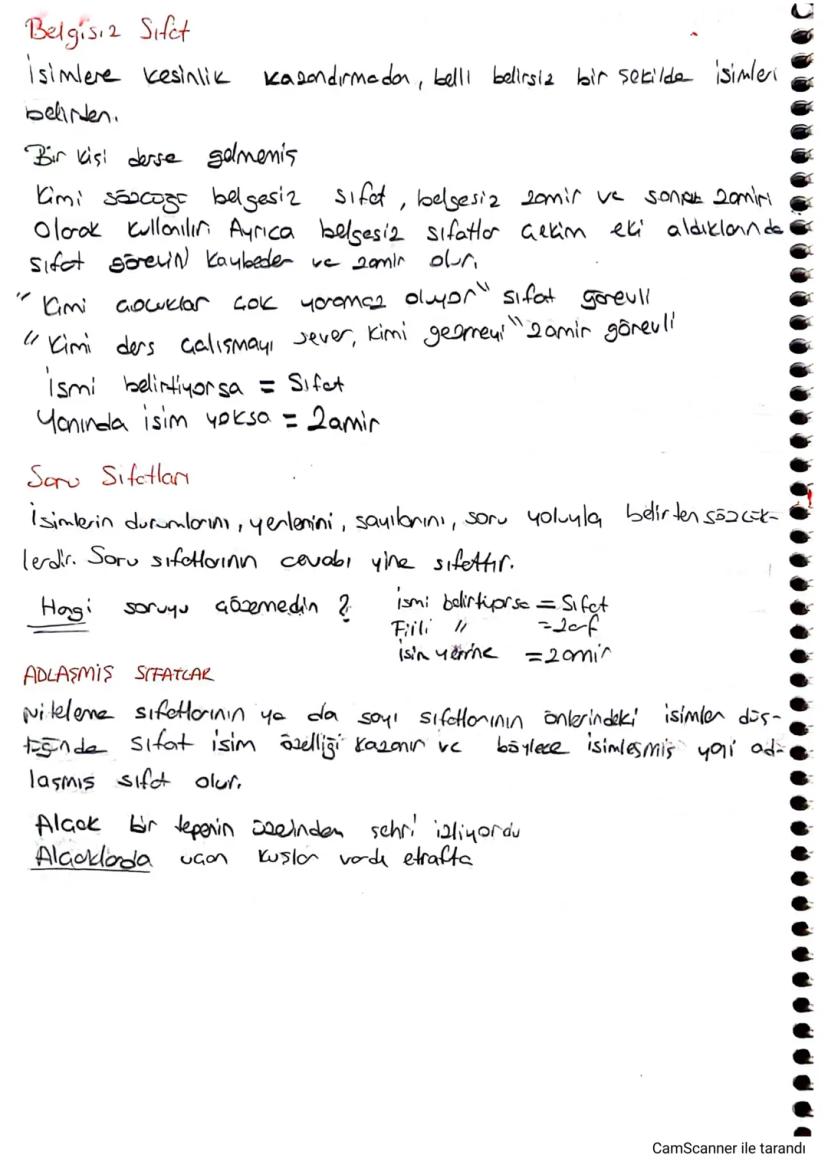 Belgisiz Sıfat
İsimlere kesinlik kazandırmadan, belli belirsiz bir şekilde isimleri
belirten.
Bir kişi derse gelmemiş
Kimi sözcüğü belgesiz sıfat, belgesiz zamir ve zamiri
olarak kullanılır. Ayrıca belgesiz sıfatlar çekim eki aldıklarında
sıfat görevin kaybeder ve zamir olur.
"Kimi çocuklar çok yaramaz oluyor" sıfat görevli
"Kimi ders çalışmayı sever, kimi gezmeyi" zamir görevli
ismi belirtiyorsa = Sıfat
Yanında isim yoksa = Zamir
Soru Sıfatları
İsimlerin durumlarını, yerlerini, sayılarını, soru yoluyla belirten sözcük-
lerdir. Soru sıfatlarının cevabı yine sıfattır.
Hangi soruyu çözemedin ? ismi belirtiyorsa = Sıfat
Fiili " = zarf
isin yerine = zamir
ADLAŞMIŞ SIFATLAR
Niteleme sıfatlarının ya da sayı sıfatlarının önlerindeki isimler düş-
tüğünde sıfat isim özelliği kazanır ve böylece isimleşmiş yani ad-
laşmış sıfat olur.
Alçak bir tepenin üzerinden şehri izliyordu
Alçaklarda uçan kuşlar vardı etrafta
CamScanner ile tarandı